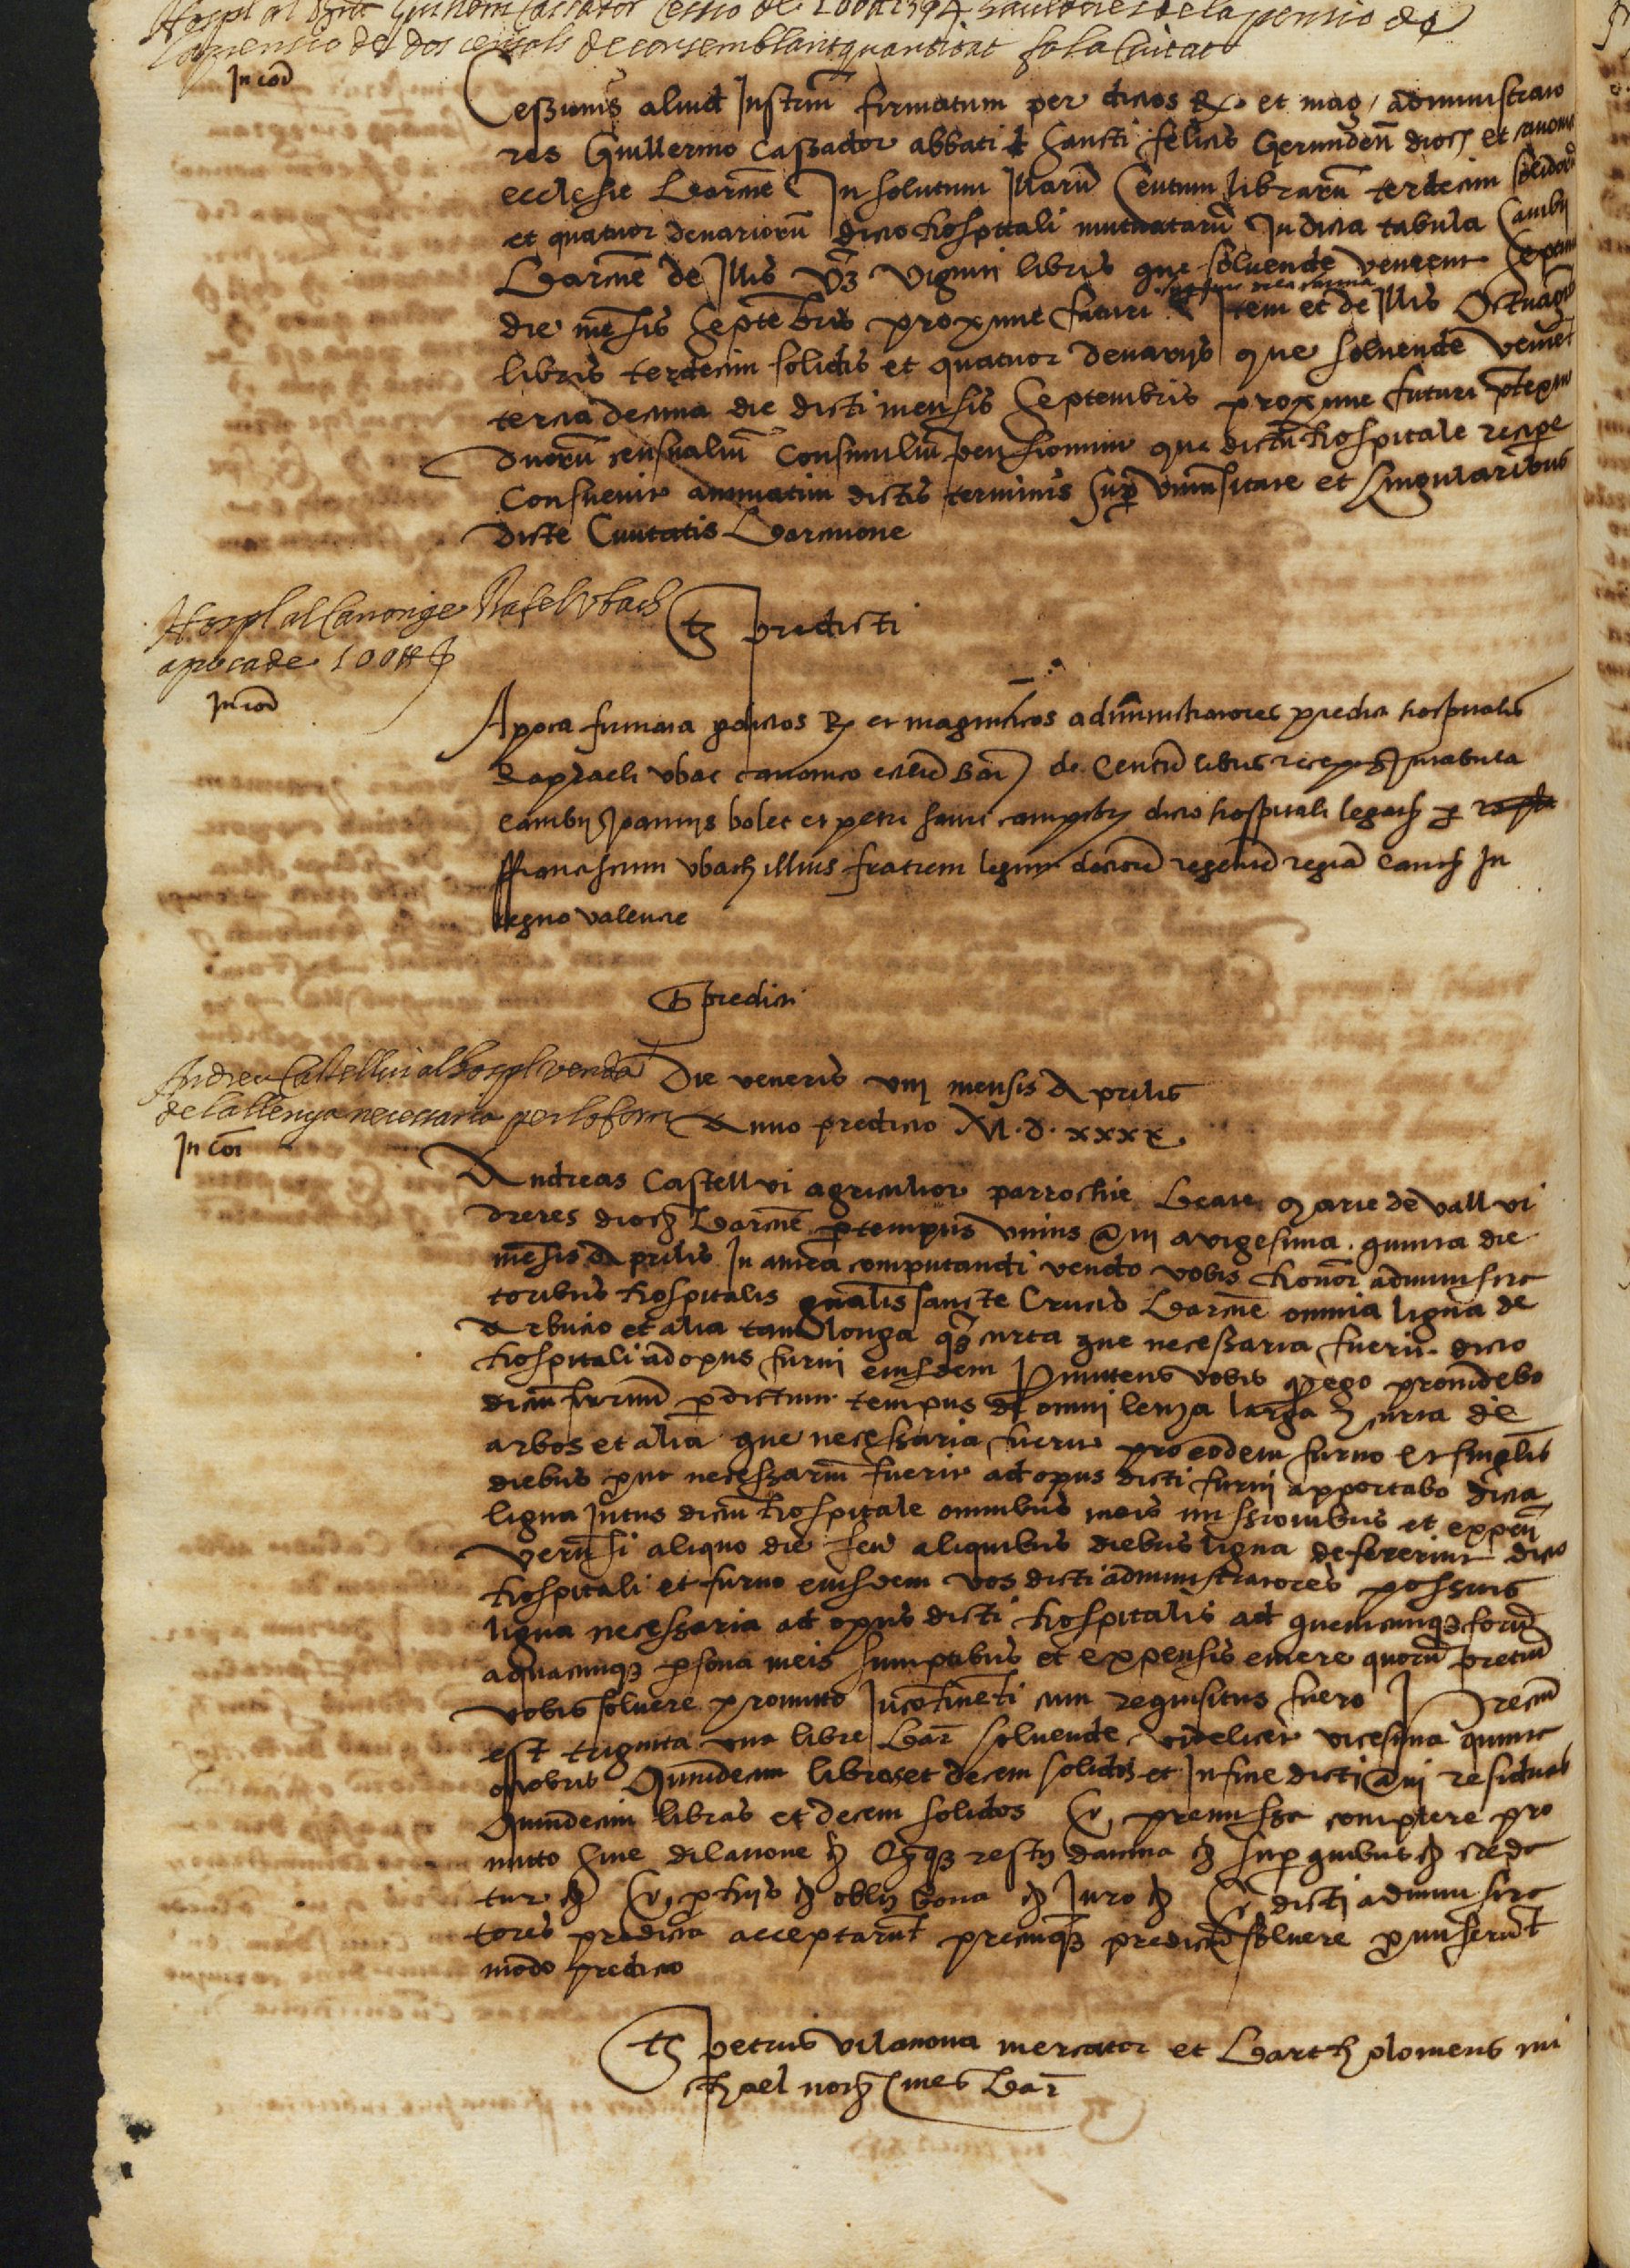 Hospl al Guillem Cassador Cessio de 100 13 4 de la pensio de
la pensio de dos censals de consemblant quantitat fa la Ciutat
In cōd
Cessionis aliud Instrm̄ firmatum per dictos Rx et mag administrato
res Guillermo Cassador abbati Sancti felicis Gerunden̄ dioc et canonic
ecclesie Barcn̄e In solutum Illarū Centum librarū terdecim solidor
et quatuor denariorū dicto hospitali mutuatarū In dicta tabula Cambij
Barcn̄e de Illis vz̄ viginti libris que solvende venient septim
die mēsis Septēbris proxime futuri Item et de Illis Octuagin
libris terdecim solidis et quatuor denarijs que solvende veniet
tercia decima die dicti mensis Septembris proxime futuri
duorū censualiū consimiliū pensionum que dictū hospitale recipe
Consuevit annuatim dictis terminis sup̄ vniversitate et singularibus
dicte Civitatis Barcinone
Hospl al Canonge Rafel Vbach
apoca de 100 ℔
ts predicti
In cōd
Apoca firmata p dictos Rx et magnificos administratores predicti hospitalis
Raphaeli vbac canonico eccliē Bar̄ de Centū libris receptis In tabula
cambij Joannis bolet et petri savi campsorum dicto hospitali legatis p
ffranciscum vbach illius fratrem legum doctorē regentē regiā cancż In
regno valencie
ts predicti
Andreu Castellvi al hospl venda
de la llenya necessaria per lo forn
In cōt
Die veneris viiij mensis Aprilis
Anno predicto M.D.xxxx.
Andreas Castellvi agricultor parrochie Beate Marie de vall vi
dreres dioc̄ Barcn̄e p tempus vnius @ni a vigesima quinta die
mēsis Aprilis In antea computandi vendo vobis honor̄ administra
toribus hospitalis gn̄alis sancte Crucis Barcn̄e omnia ligna de
Arbucio et alia tam longa q̄ curta que necessaria fuerit dicto
hospitali ad opus furni eiusdem Promittens vobis q ego providebo
dictū furnū p dictum tempus de omni lenya larga z curta de
arbos et alia que necessaria fuerit pro eodem furno Et singlis
diebus p̄ut necessariū fuerit ad opus dicti furni apportabo dicta
ligna Intus dictū hospitale omnibus meis missionibus et expen̄
Verū si aliquo die seu aliquibus diebus ligna defecerint dicto
hospitali et furno eiusdem vos dicti administratores possitis
ligna necessaria ad opus dicti hospitalis ad quemcumqz forū
a quacumqz psona meis sumptibus et expensis emere quorū pretiū
vobis solvere promitto Incōtinēti cum requisitus fuero Preciū
est triginta vna libre Bar̄ solvende videlicet vicesima quinta
octobris Quindecim libras et decem solidos et In fine dicti @ni residuas
Quindecim libras et decem solidos Et premissa complere pro
mitto sine dilatione etc̄ Oīaqz restij damna etc̄ sup quibus etc̄ crede
tur etc̄ Et p hijs etc̄ oblig bona etc̄ Juro etc̄ Et dicti administra
tores predicta acceptarūt preciumqz predictū solvere p̄miserūt
modo predicto
ts petrus vilanova mercator et Bartholomeus mi
chael noch cives Bar̄